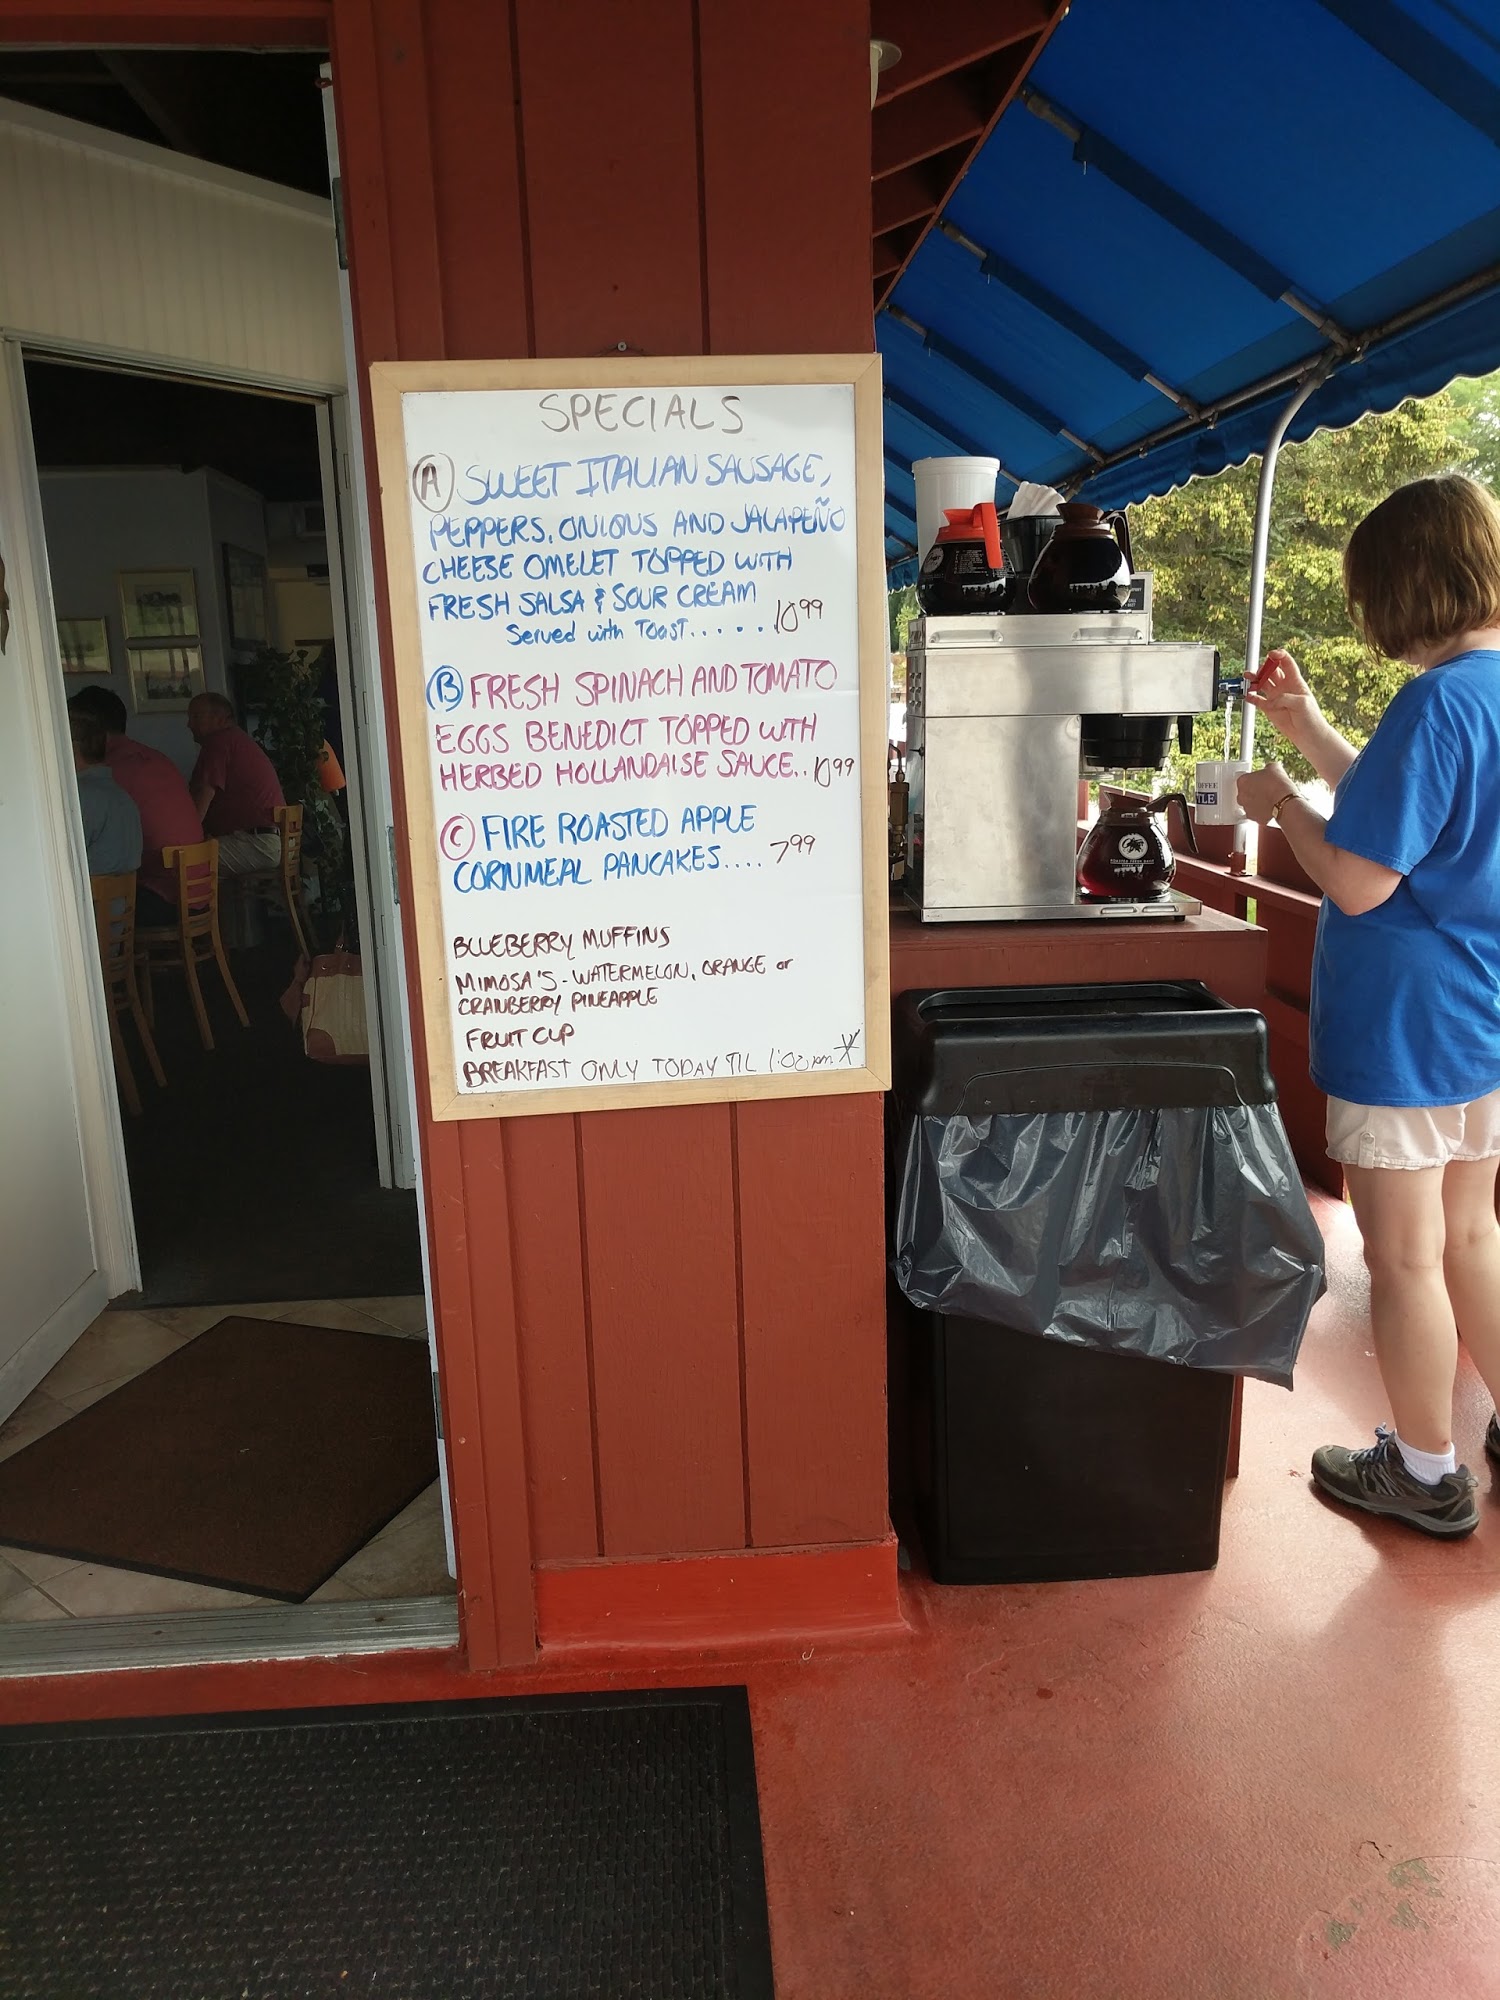 SPECIALS
(A) SWEET ITALIAN SAUSAGE,
PEPPERS, ONIONS AND JALAPEÑO
CHEESE OMELET TOPPED WITH
FRESH SALSA & SOUR CREAM
Served with Toast..... 10 99
(B) FRESH SPINACH AND TOMATO
EGGS BENEDICT TOPPED WITH
HERBED HOLLANDAISE SAUCE.. 10 99
(C) FIRE ROASTED APPLE
CORNMEAL PANCAKES.... 7 99
BLUEBERRY MUFFINS
MIMOSA'S - WATERMELON, ORANGE or
CRANBERRY PINEAPPLE
FRUIT CUP
BREAKFAST ONLY TODAY TIL 1:00 pm *